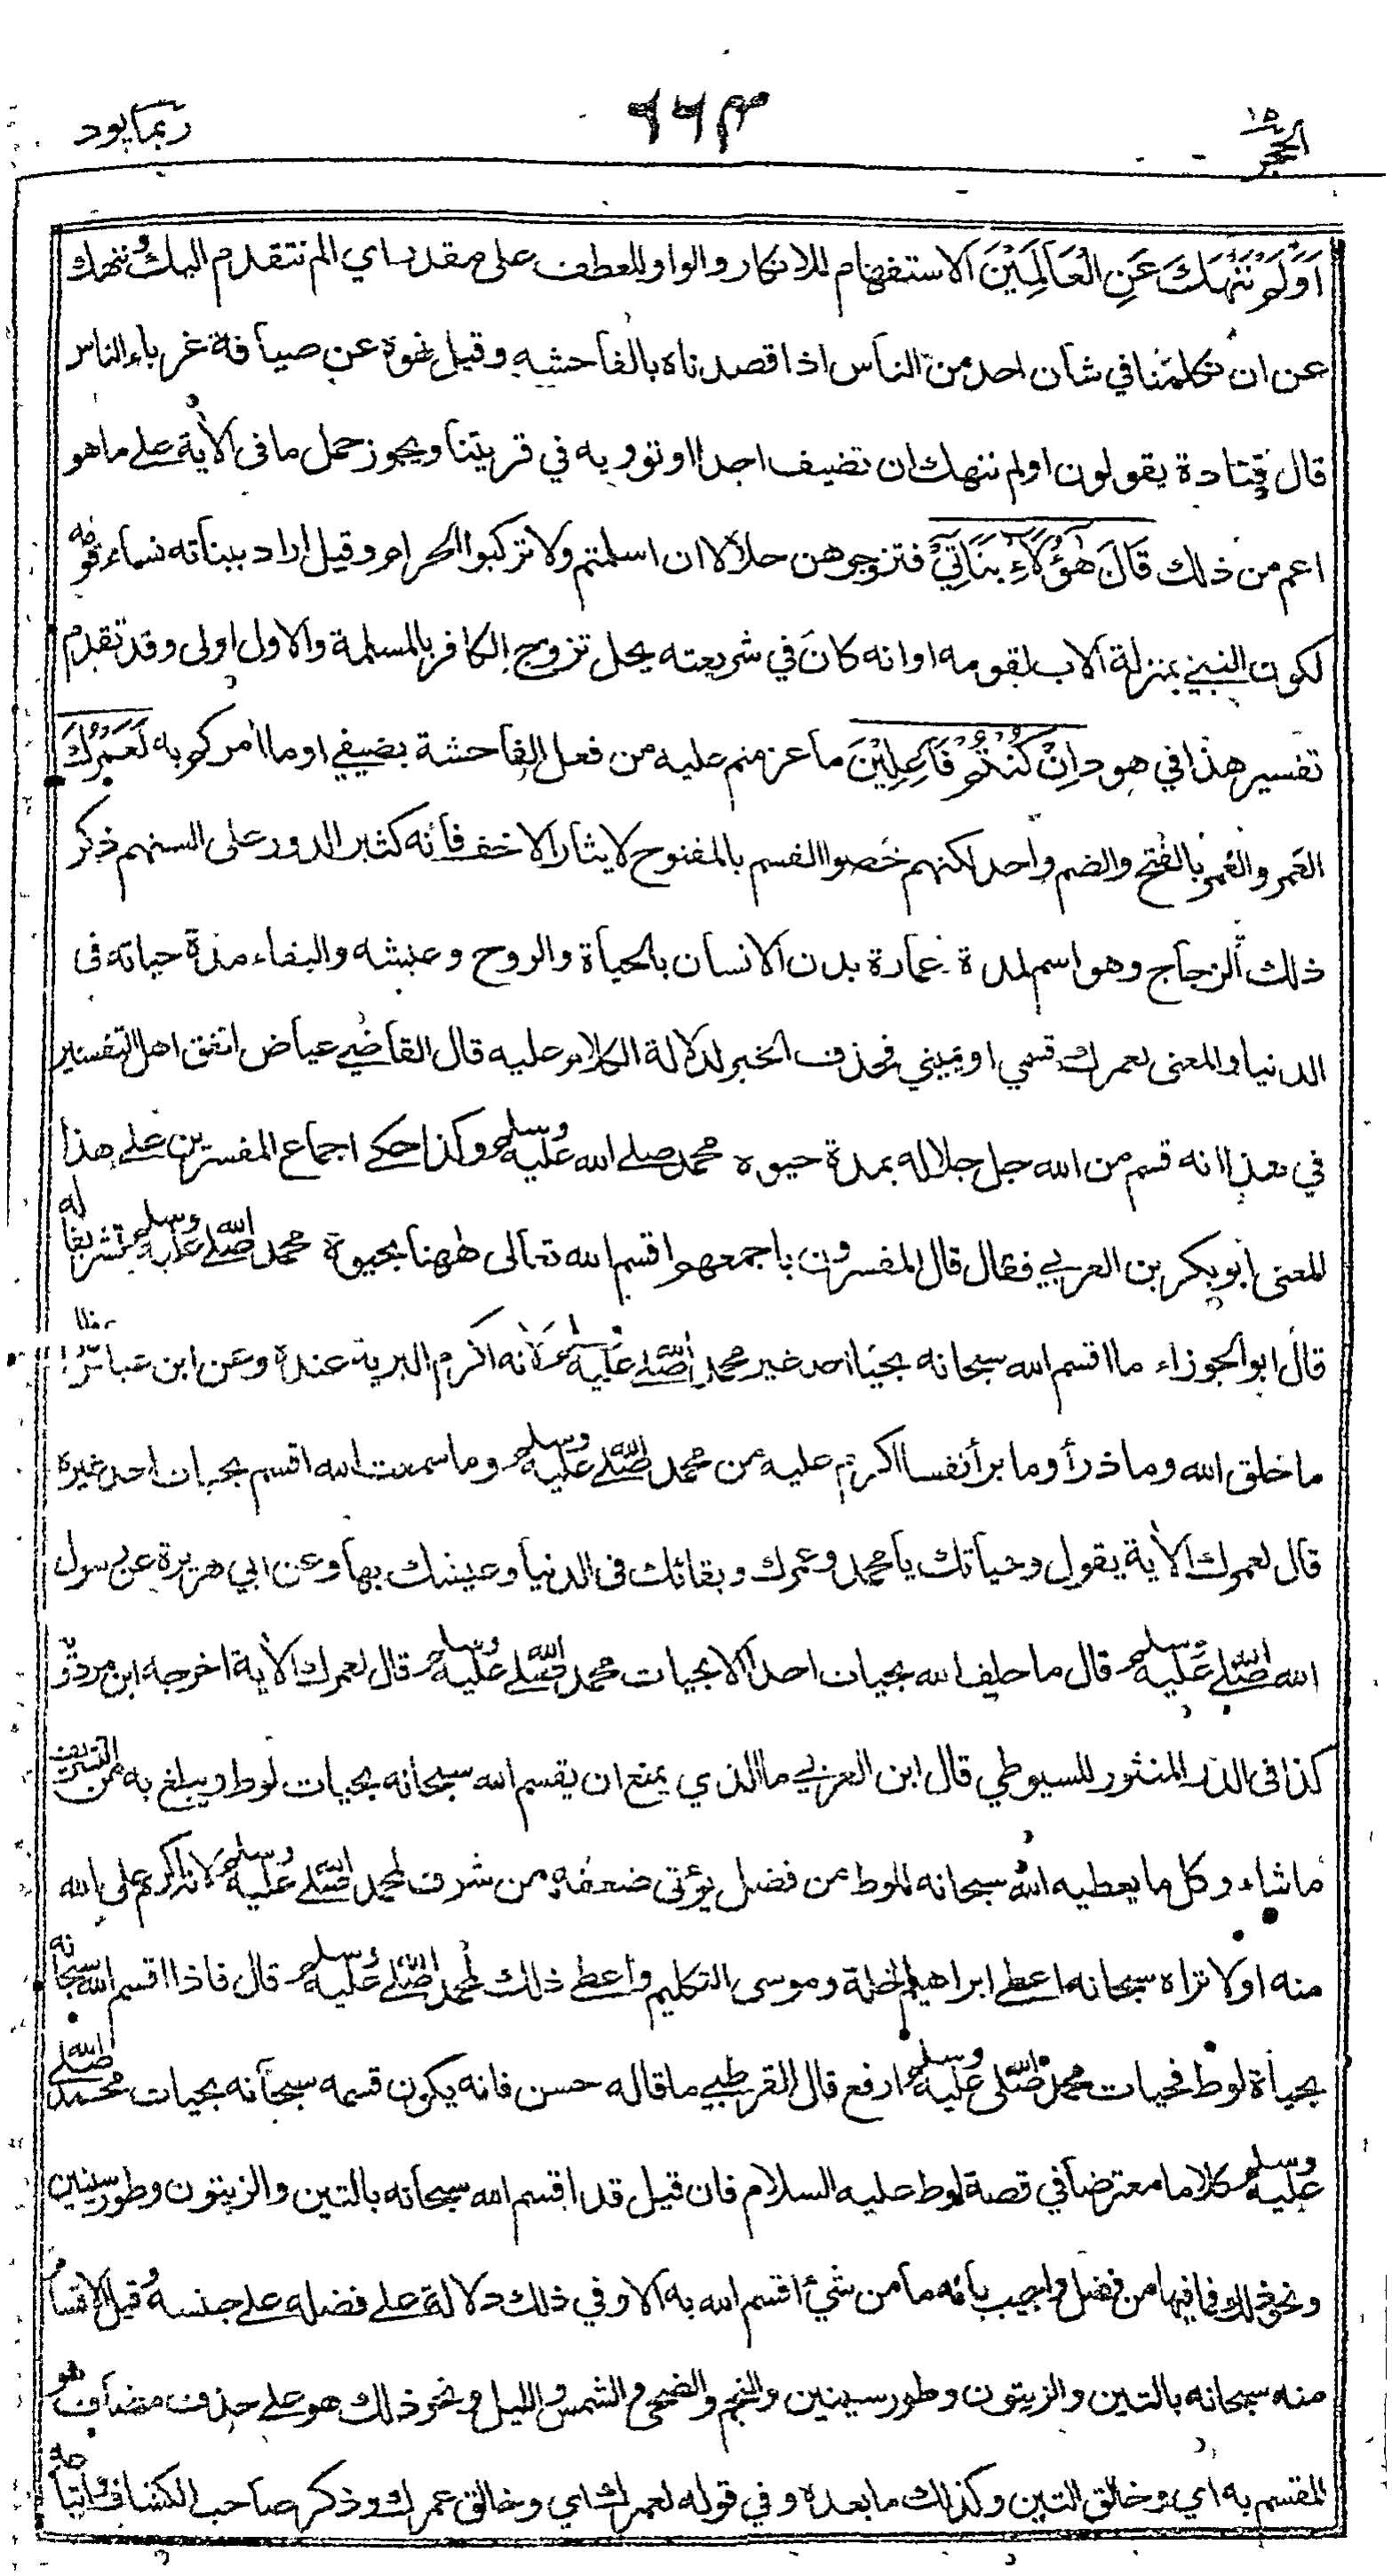 ربما يود
٤٦٦
الحجر ١٥
اَوَلَمْ نَنْهَكَ عَنِ الْعَالَمِيْنَ الاستفهام للانكار والواو للعطف على مقدر اي الم نتقدم اليك وننهك
عن ان تكلمنا في شأن احد من الناس اذا قصدناه بالفاحشه وقيل نهوه عن ضيافة غرباء الناس
قال قتادة يقولون اولم ننهك ان تضيف احدا اوتوويه في قريتنا ويجوز حمل ما فى الأية على ما هو
اعم من ذلك قَالَ هٰؤُلَاءِ بَنَاتِيْ فتزوجوهن حلالا ان اسلمتم ولا تركبوا الحرام وقيل اراد ببناته نساء قومه
لكون النبي بمنزلة الاب لقومه او انه كان في شريعته يحل تزوج الكافر بالمسلمة والاول اولى وقد تقدم
تفسير هذا في هود اِنْ كُنْتُمْ فَاعِلِيْنَ ما عزمتم عليه من فعل الفاحشة بضيفي او ما أمركم به لَعَمْرُكَ
العَمر والعُمر بالفتح والضم واحد لكنهم خصوا القسم بالمفتوح لايثار الاخف فانه كثير الدور على السنهم ذكر
ذلك الزجاج وهو اسم لمدة عمارة بدن الانسان بالحياة والروح وعيشه والبقاء مدة حياته فى
الدنيا والمعنى لعمرك قسمي او يميني فحذف الخبر لدلالة الكلام عليه قال القاضي عياض اتفق اهل التفسير
في هذا انه قسم من الله جل جلاله بمدة حيوة محمد صلى الله عليه وسلم وكذا حكى اجماع المفسرين على هذا
المعنى ابو بكر بن العربي فقال قال المفسرون باجمعهم اقسم الله تعالى ههنا بحيوة محمد صلى الله عليه وسلم تشريفا له
قال ابو الجوزاء ما اقسم الله سبحانه بحيا احد غير محمد صلى الله عليه وسلم لانه اكرم البرية عنده وعن ابن عباس
ما خلق الله وما ذرأ وما برأ نفسا اكرم عليه من محمد صلى الله عليه وسلم وما سمعت الله اقسم بحيات احد غيره
قال لعمرك الأية يقول وحياتك يا محمد وعمرك وبقائك فى الدنيا وعيشك بها وعن ابي هريرة عن رسول
الله صلى الله عليه وسلم قال ما حلف الله بحيات احد الا بحيات محمد صلى الله عليه وسلم قال لعمرك الأية اخرجه ابن مردويه
كذا فى الدر المنثور للسيوطي قال ابن العربي ما الذي يمنع ان يقسم الله سبحانه بحيات لوط ويبلغ به من التشريف
ما شاء وكل ما يعطيه الله سبحانه للوط من فضل يؤتى ضعفه من شرف لمحمد صلى الله عليه وسلم لانه اكرم على الله
منه اولا تراه سبحانه اعطى ابراهيم الخلة وموسى التكليم واعطى ذلك لمحمد صلى الله عليه وسلم قال فاذا اقسم الله سبحانه
بحياة لوط فحيات محمد صلى الله عليه وسلم ارفع قال القرطبي ما قاله حسن فانه يكون قسمه سبحانه بحيات محمد صلى الله
عليه وسلم كلاما معترضا في قصة لوط عليه السلام فان قيل قد اقسم الله سبحانه بالتين والزيتون وطور سينين
ونحو ذلك فما فيها من فضل واجيب بانه ما من شيء اقسم الله به الا وفي ذلك دلالة على فضله على جنسه وقيل الاقسام
منه سبحانه بالتين والزيتون وطور سينين والنجم والضحى والشمس والليل ونحو ذلك هو على حذف مضاف هو
المقسم به اي وخالق التين وكذلك ما بعده وفي قوله لعمرك اي وخالق عمرك وذكر صاحب الكشاف